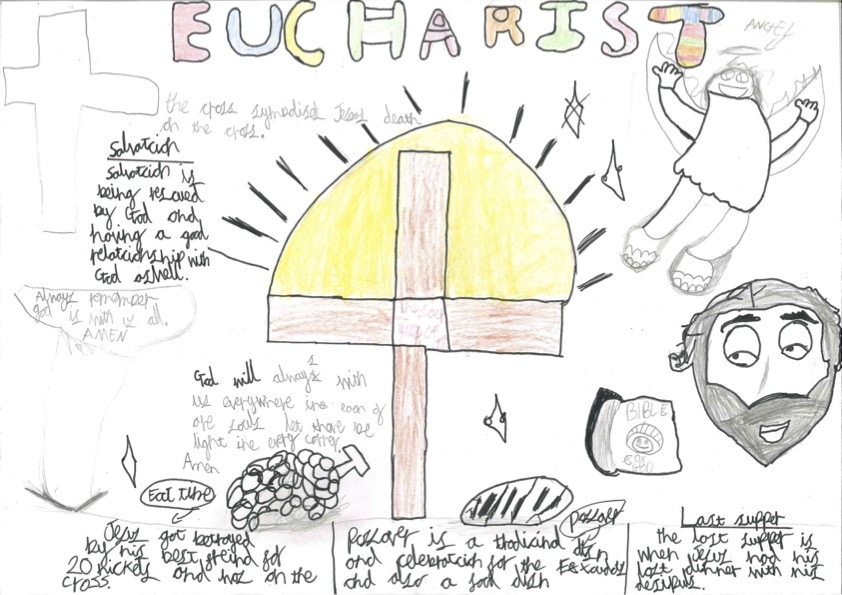 EUCHARIST
ANGEL
the cross symbolisd Jesus death
on the cross.
Salvatcion
Salvatcion is
being rescued
by God and
having a good
relationship with
God aswell.
Always remember
god is with us all.
AMEN
God will always with
us everywhere in
are souls let there be
light in every
Amen
BIBLE
Eat ripe
Jesus got betrayed
by his best freind for
20 nickels and was on the
cross.
passover
passover is a tradicinal dish
and celebratcion for the Exxoudos
and also a food dish
Last supper
the last supper is
when Jesus had his
last dinner with his